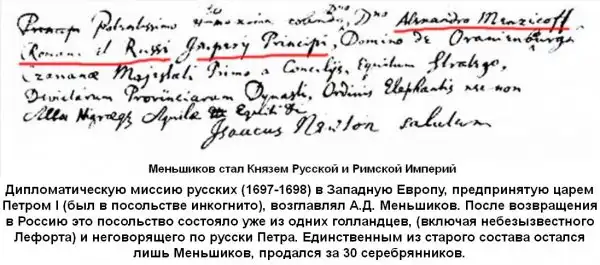 Potentissimo colendo, Dno Alexandro Menzicoff
Romani et Russi Imperij Principi, Domino de Oranienburgh
Majestati Primo a Consiliis, Equitum Stratego,
Devictarum Provinciarum Dynasti, Ordinis Elephantis nec non
Aquilae Equiti
Isaacus Newton salutem
Меньшиков стал Князем Русской и Римской Империй
Дипломатическую миссию русских (1697-1698) в Западную Европу, предпринятую царем
Петром I (был в посольстве инкогнито), возглавлял А.Д. Меньшиков. После возвращения
в Россию это посольство состояло уже из одних голландцев, (включая небезызвестного
Лефорта) и неговорящего по русски Петра. Единственным из старого состава остался
лишь Меньшиков, продался за 30 серебрянников.